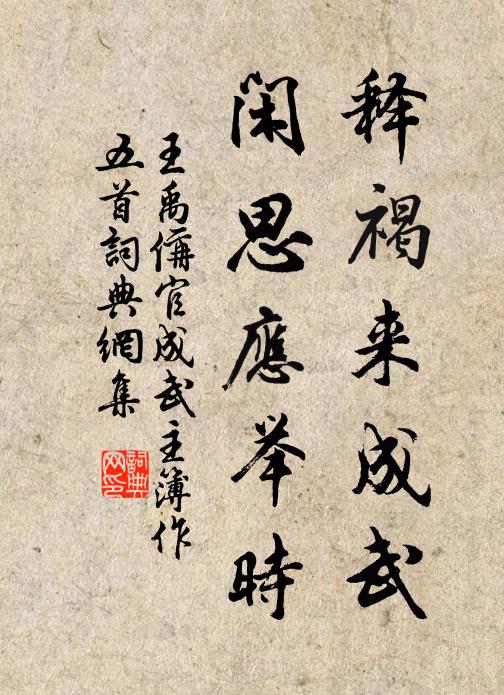 释褐来成武
闲思應举時
王禹偁官成武主簿作
五首詞典網集
詞典
网印